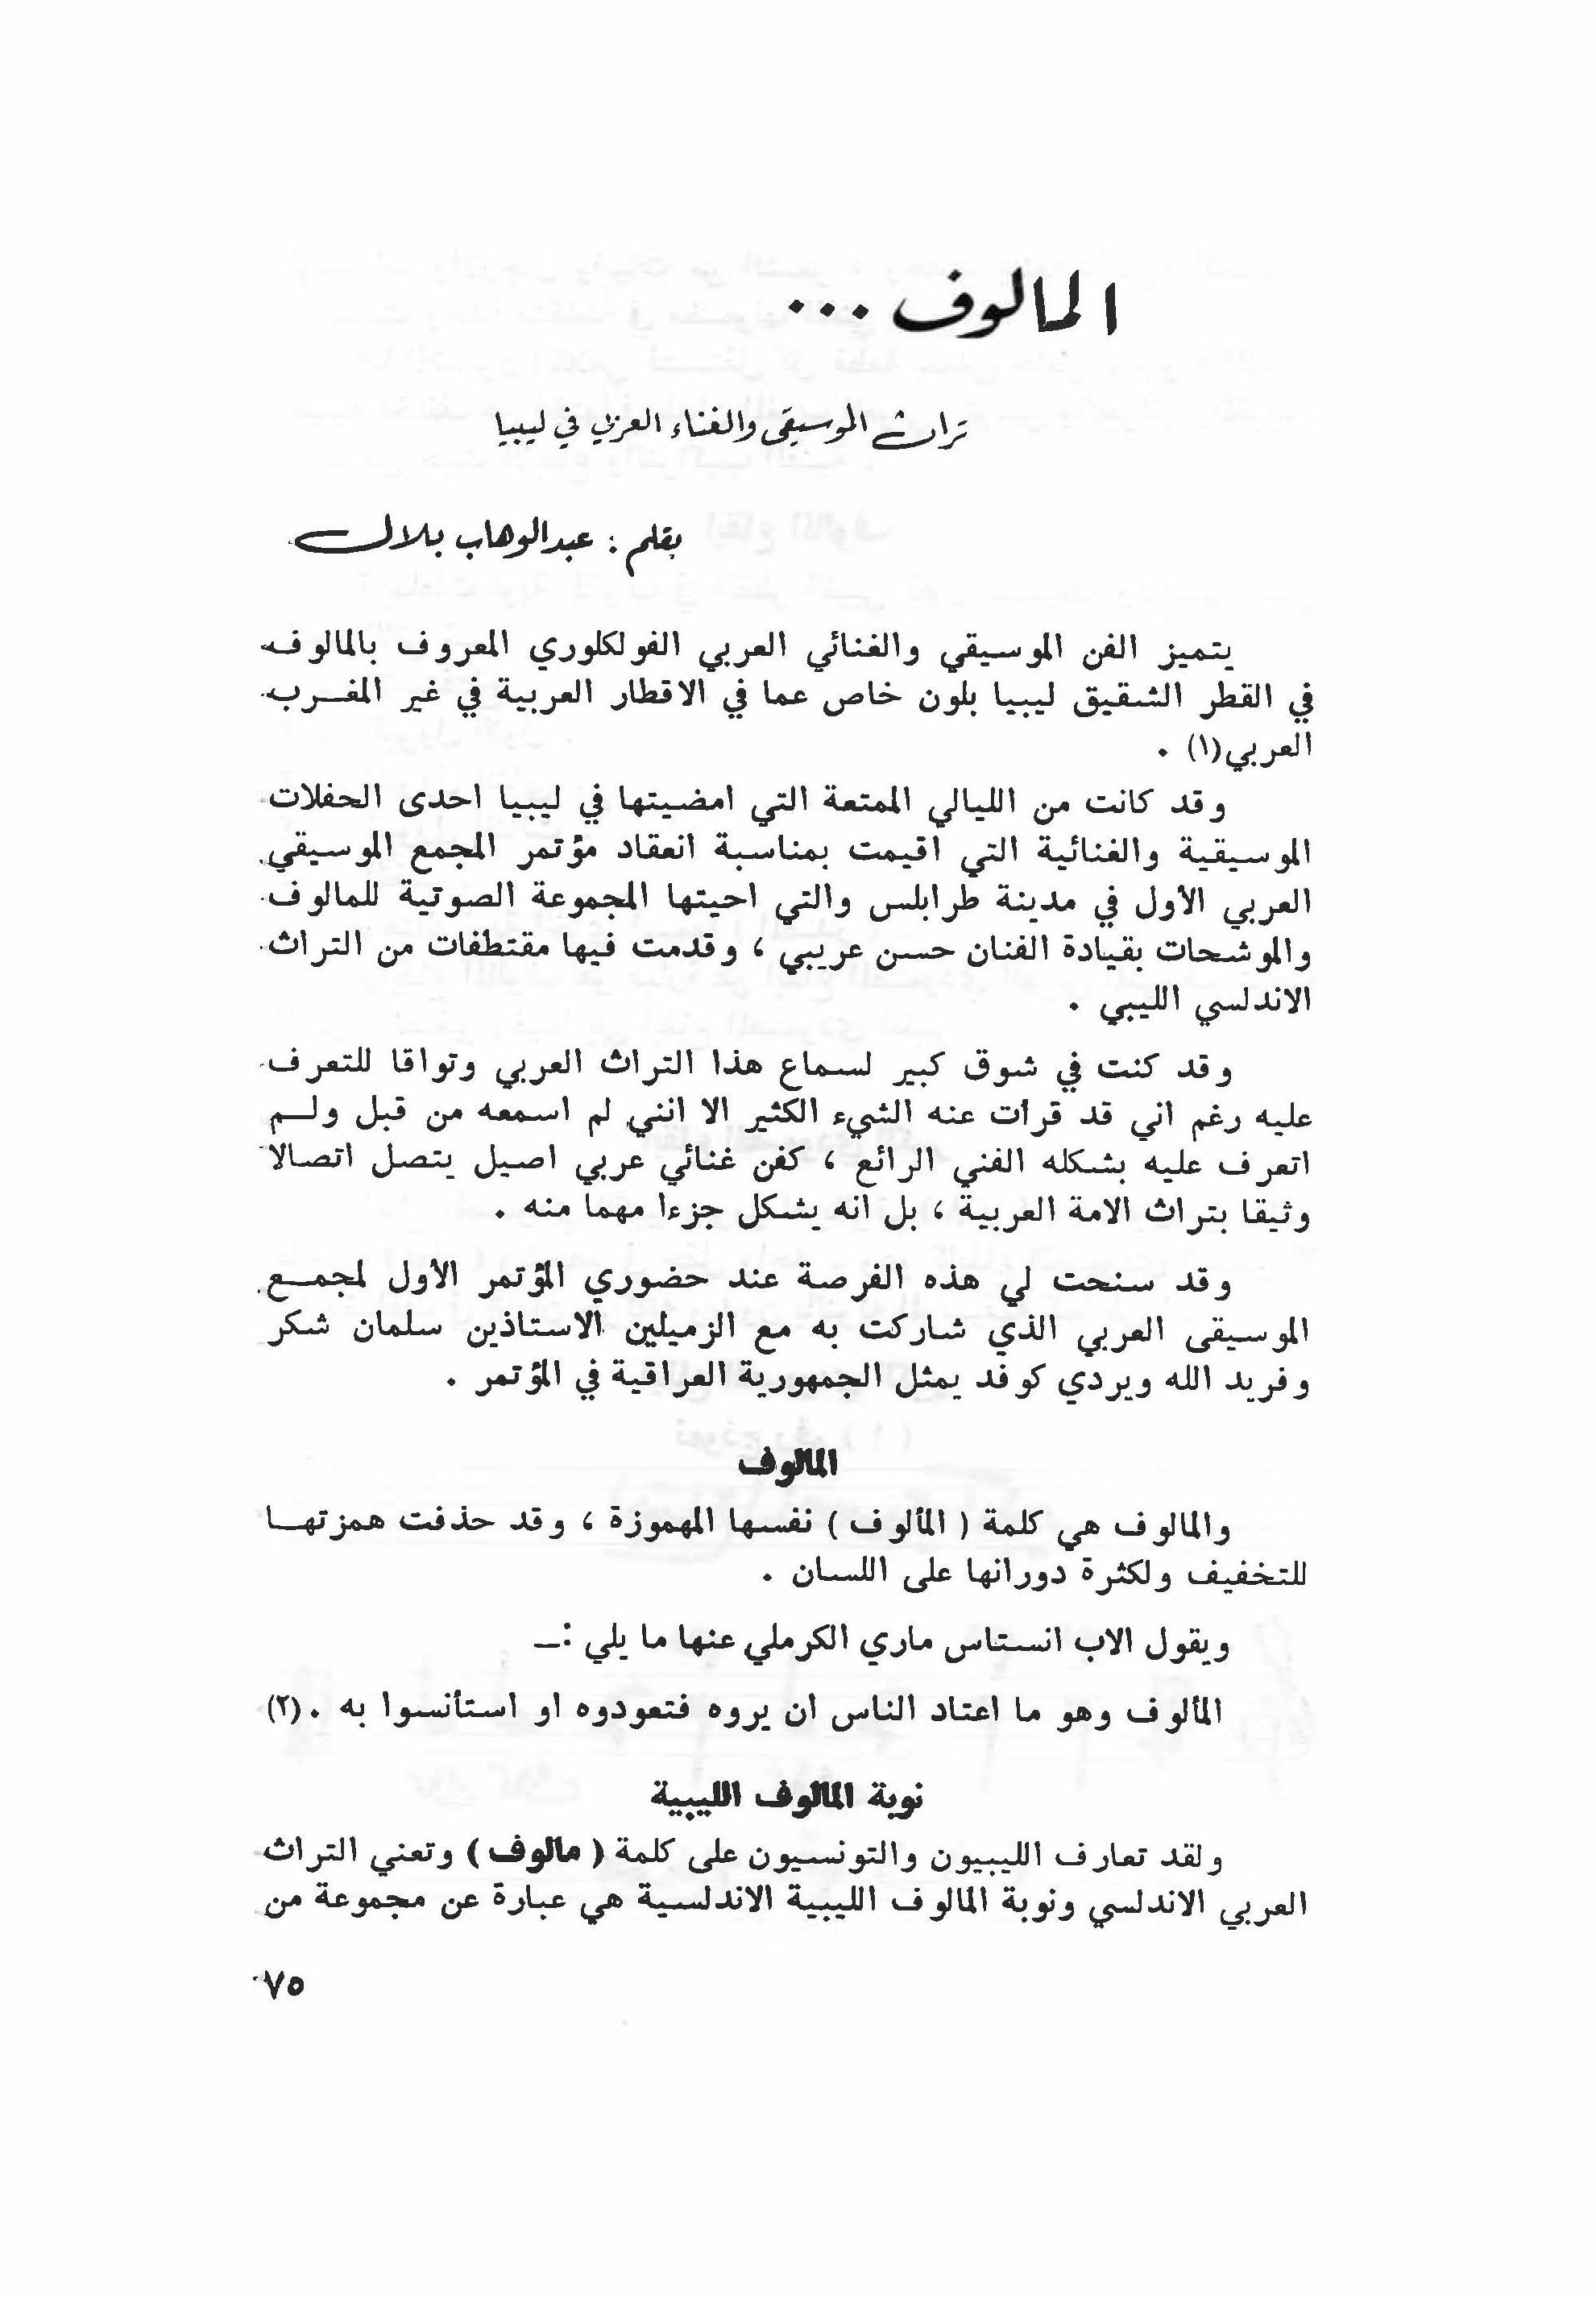 المالوف ...
تراث الموسيقى والغناء العربي في ليبيا
بقلم : عبدالوهاب بلال
يتميز الفن الموسيقي والغنائي العربي الفولكلوري المعروف بالمالوف
في القطر الشقيق ليبيا بلون خاص عما في الاقطار العربية في غير المغـرب
العربي(١) .
وقد كانت من الليالي الممتعة التي امضيتها في ليبيا احدى الحفلات
الموسيقية والغنائية التي اقيمت بمناسبة انعقاد مؤتمر المجمع الموسيقي
العربي الأول في مدينة طرابلس والتي احيتها المجموعة الصوتية للمالوف
والموشحات بقيادة الفنان حسن عريبي ، وقدمت فيها مقتطفات من التراث
الاندلسي الليبي .
وقد كنت في شوق كبير لسماع هذا التراث العربي وتواقا للتعرف
عليه رغم اني قد قرأت عنه الشيء الكثير الا انني لم اسمعه من قبل ولـم
اتعرف عليه بشكله الفني الرائع ، كفن غنائي عربي اصيل يتصل اتصالا
وثيقا بتراث الامة العربية ، بل انه يشكل جزءا مهما منه .
وقد سنحت لي هذه الفرصة عند حضوري المؤتمر الأول لمجمـع
الموسيقى العربي الذي شاركت به مع الزميلين الاستاذين سلمان شكر
وفريد الله ويردي كوفد يمثل الجمهورية العراقية في المؤتمر .
المالوف
والمالوف هي كلمة ( المألوف ) نفسها المهموزة ، وقد حذفت همزتهـا
للتخفيف ولكثرة دورانها على اللسان .
ويقول الاب انستاس ماري الكرملي عنها ما يلي :ـ
المألوف وهو ما اعتاد الناس ان يروه فتعودوه او استأنسوا به .(٢)
نوبة المالوف الليبية
ولقد تعارف الليبيون والتونسيون على كلمة ( مالوف ) وتعني التراث
العربي الاندلسي ونوبة المالوف الليبية الاندلسية هي عبارة عن مجموعة من
٧٥